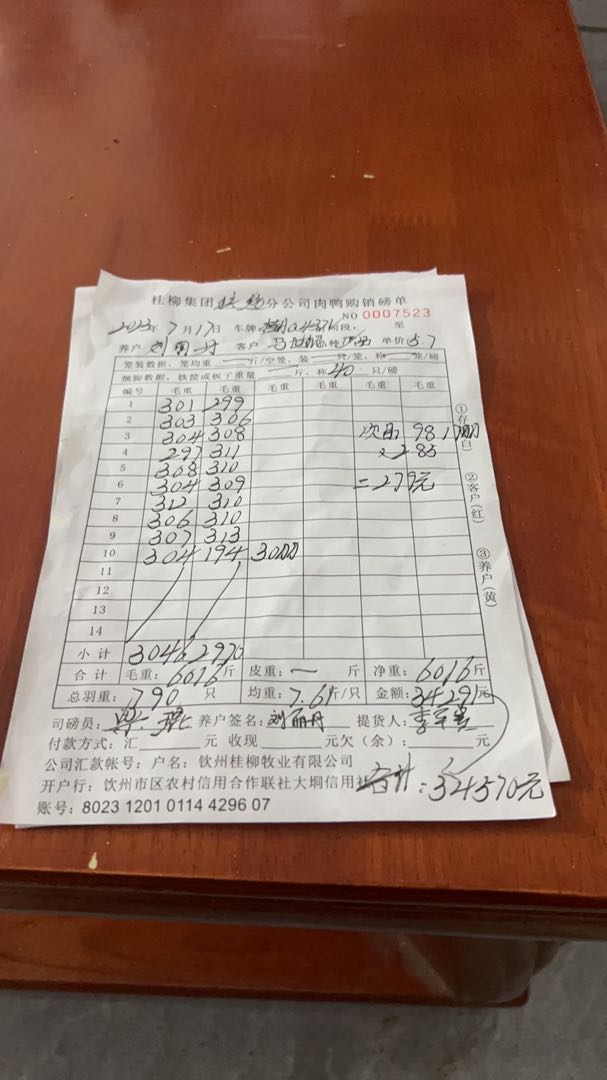 桂柳集团 分公司肉鸭购销磅单
NO 0007523
2023年 7月17日 车牌: 阶段: 至
养户 客户 品种 单价 5.7
笼装数据: 笼均重 — 斤/空笼, 装 — 只/笼, 称 — 笼/磅
捆脚数据: 铁筐或板子重量 — 斤, 称 40 只/磅
编号 毛重 毛重 毛重 毛重 毛重 毛重
1 301 299
2 303 306
3 304 308 次品 98斤
4 297 311 ×2.85
5 308 310
6 304 309 =279元
7 312 310
8 306 310
9 307 313
10 304 194 30只
11
12
13
14
小计 3046 2970
合计 毛重: 6016斤 皮重: — 斤 净重: 6016斤
总羽重: 790 只 均重: 7.61斤/只 金额: 34291元
司磅员: 养户签名: 刘丽丹 提货人:
付款方式: 汇 元 收现 元欠(余): 元
公司汇款帐号: 户名: 钦州桂柳牧业有限公司
开户行: 钦州市区农村信用合作联社大垌信用社
合计: 34570元
账号: 8023 1201 0114 4296 07
①存(白) ②客户(红) ③养户(黄)